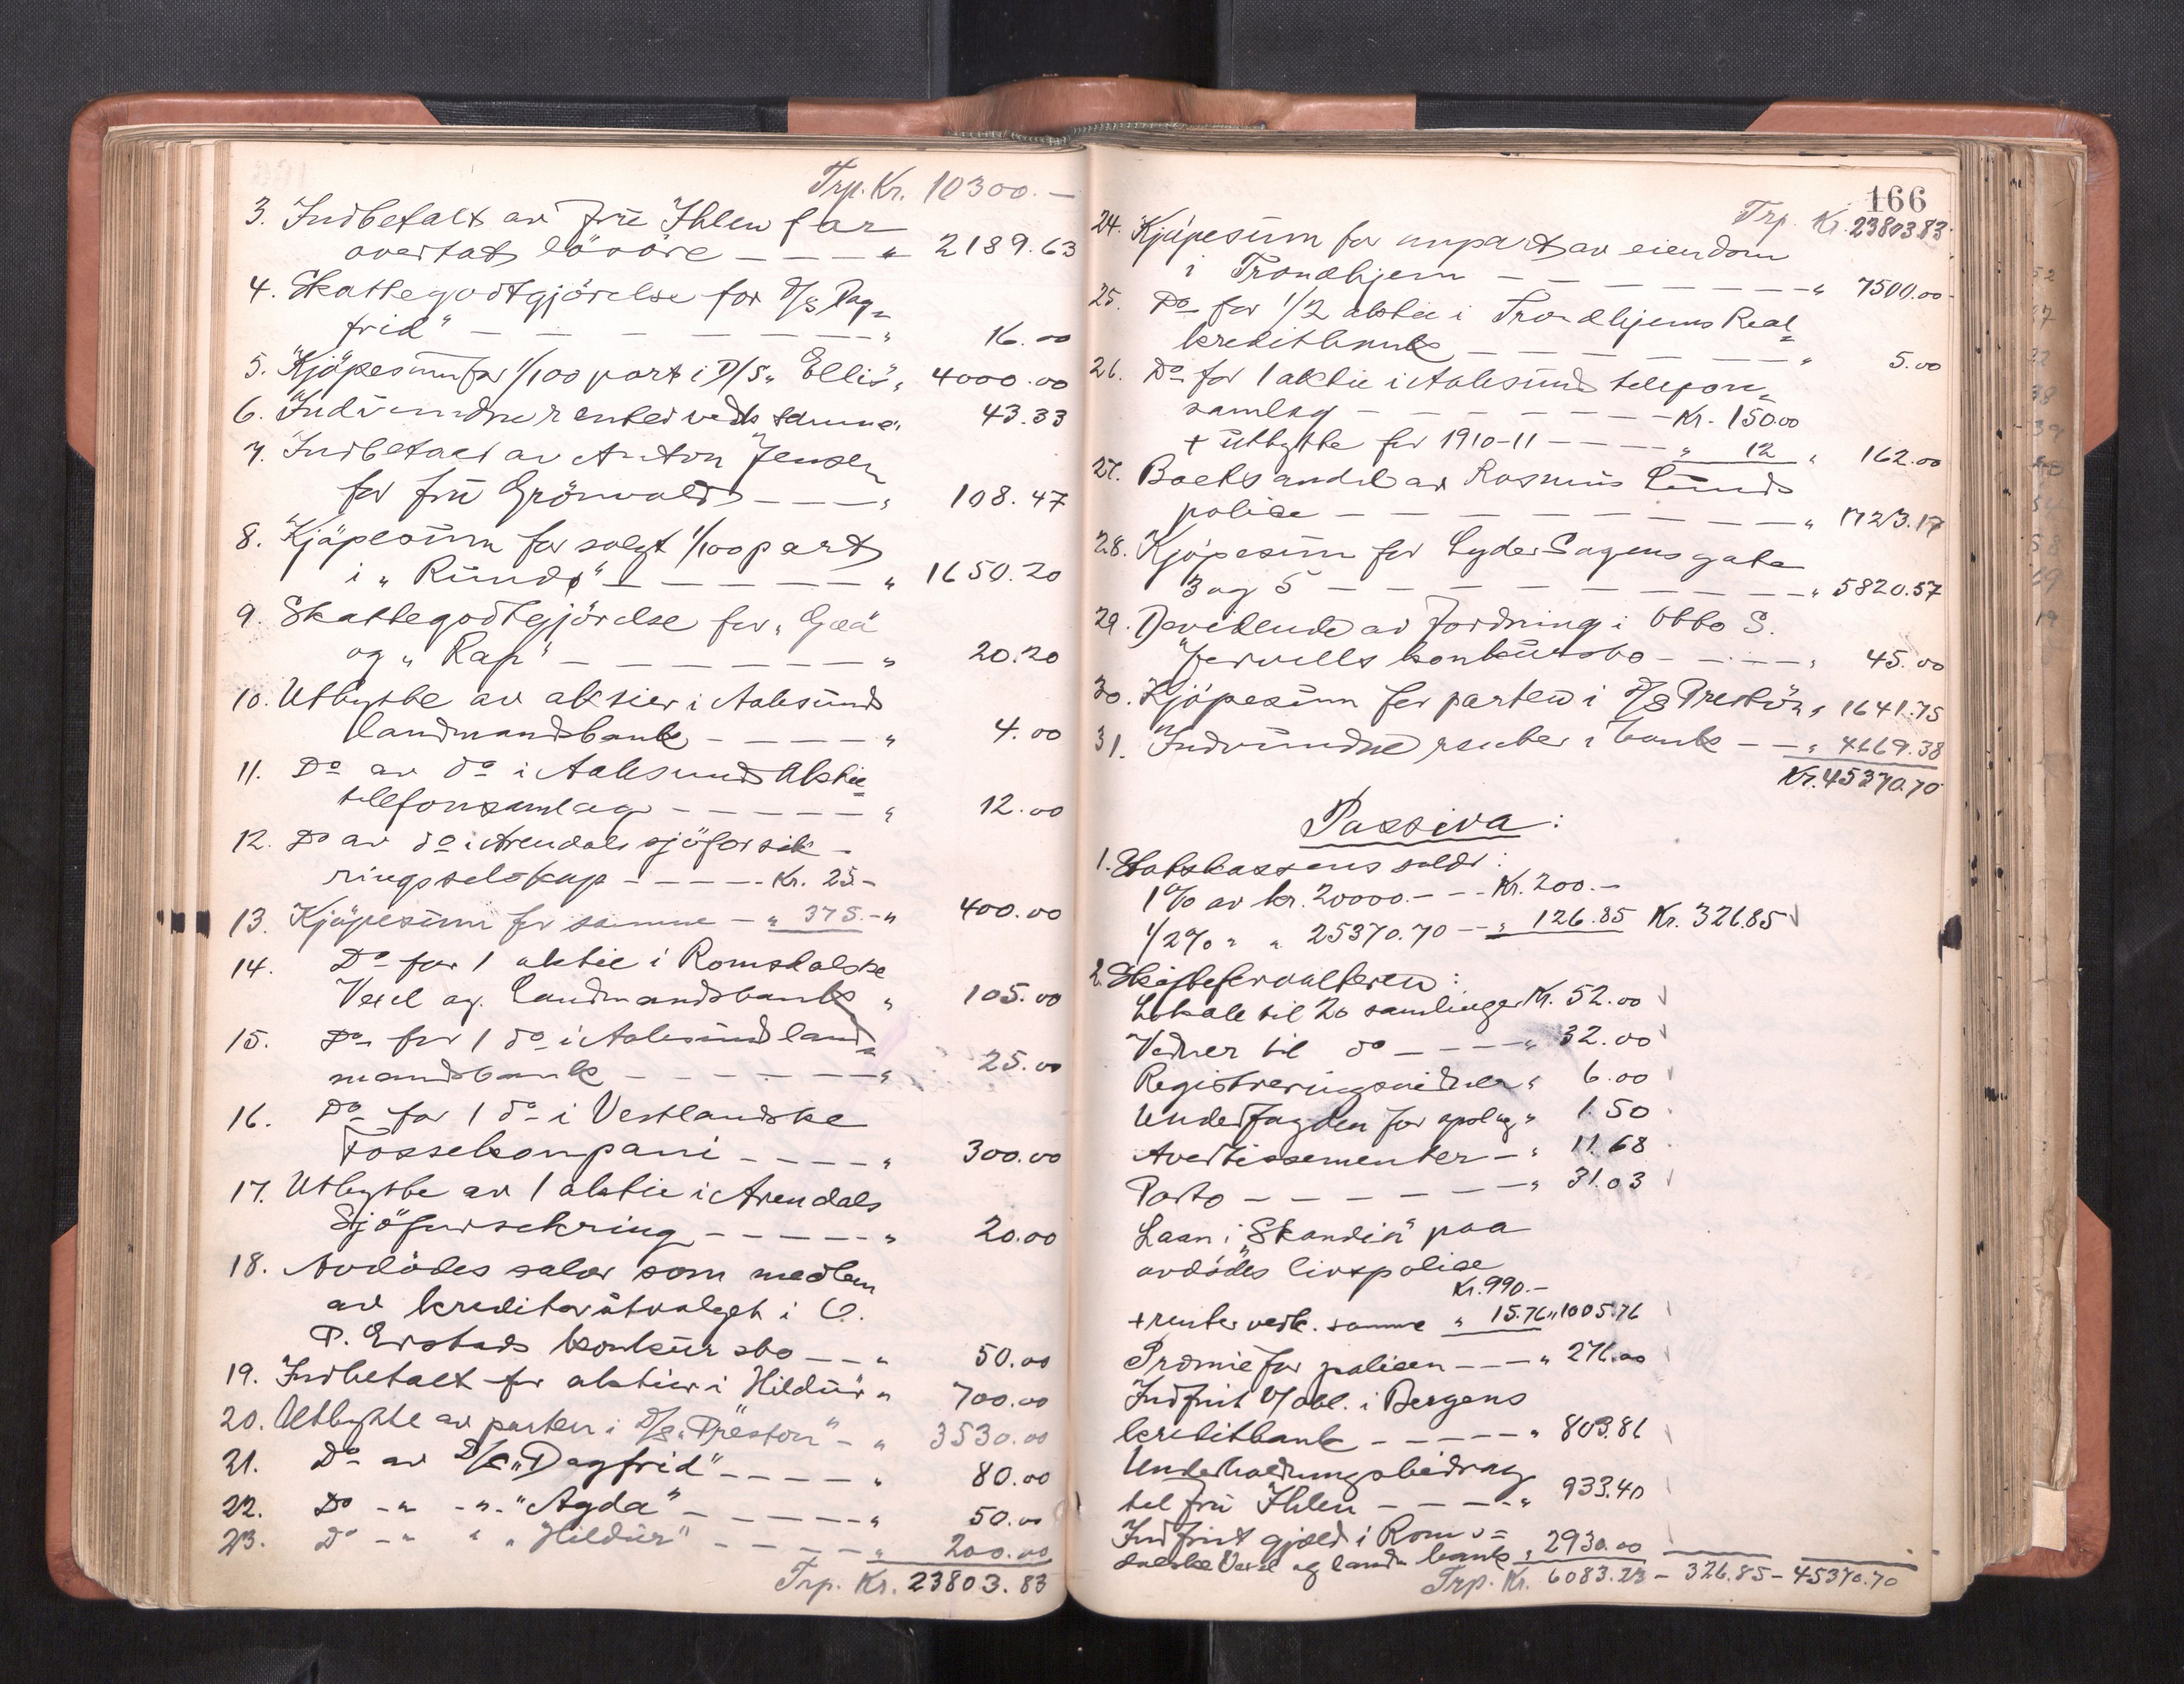 Trp. Kr. 10300.—
3. Indbetalt av fru Ihlen for
overtat lösöre — — — " 2189.63
4. Skattegodtgjörelse for D/S "Dag-
frid" — — — — — " 16.00
5. Kjöpesum for 1/100 part i D/S "Ellis" " 4000.00
6. Indvundne renter vedk. samme " 43.33
7. Indbetalt av Anton Jensen
for fru Grönvold — — — " 108.47
8. Kjöpesum for solgt 1/100 part
i "Rundö" — — — — — " 1650.20
9. Skattegodtgjörelse for "Gæa"
og "Rap" — — — — — — " 20.20
10. Utbytte av aktier i Aalesunds
landmandsbank — — — — " 4.00
11. Do av do i Aalesunds Aktie
telefonsamlag — — — — — " 12.00
12. Do av do i Arendals sjöforsik-
ringsselskap — — — — Kr. 25.—
13. Kjöpesum for samme — " 375.— " 400.00
14. Do for 1 aktie i Romsdalske
Vexel og Landmandsbank " 105.00
15. Do for 1 do i Aalesund land-
mandsbank — — — — — — " 25.00
16. Do for 1 do i Vestlandske
Fossekompani — — — — " 300.00
17. Utbytte av 1 aktie i Arendals
Sjöforsikring — — — — — " 20.00
18. Avdödes salær som medlem
av kreditorutvalget i O.
P. Erstads konkursbo — — " 50.00
19. Indbetalt for aktier i Hildur " 700.00
20. Utbytte av parten i D/S "Preston" — " 3530.00
21. Do av D/S "Dagfrid" — — — — " 80.00
22. Do — " — " — "Agda" — — — — — " 50.00
23. Do — " " "Hildur" — — — — " 200.00
Trp. Kr. 23803.83
166
Trp. Kr. 23803.83
24. Kjöpesum for anpart av eiendom
i Trondhjem — — — — — — — " 7500.00
25. Do for 1/2 aktie i Trondhjems Real-
kreditbank — — — — — — " 5.00
26. Do for 1 aktie i Aalesunds telefon-
samlag — — — — — — — Kr. 150.00
+ utbytte for 1910-11 — — — — " 12 " 162.00
27. Boets andel av Rasmus Lunds
police — — — — — — — — — " 1723.17
28. Kjöpesum for Lyder Sagens gate
3 og 5 — — — — — — — — — " 5820.57
29. Devidende av fordring i Otto S.
Jervells konkursbo — — — — " 45.00
30. Kjöpesum for parten i D/S "Preston" " 1641.75
31. Indvundne renter i bank — — " 4669.38
Kr. 45370.70
Passiva:
1. Statskassens saldo:
1% av kr. 20000.— — — Kr. 200.—
1/2% " " 25370.70 — " 126.85 Kr. 326.85
2. Skifteforvalteren:
Lokale til 26 samlinger Kr. 52.00
Vidner til do — — — — " 32.00
Registreringsvidner " 6.00
1.50
Avertissementer — " 11.68
Porto — — — — — — — " 31.03
Laan i "Skandia" paa
avdödes livspolice
Kr. 990.—
+ renter vedk. samme " 15.76 " 1005.76
Præmie for policen — — — " 276.00
Indfriet V/obl. i Bergens
kreditbank — — — — — " 803.86
Underholdningsbidrag
til fru Ihlen — — — — " 933.40
Indfriet gjæld i Roms-
dalske Vexel og landm.bank " 2930.00
Trp. Kr. 6083.23 — 326.85 — 45370.70